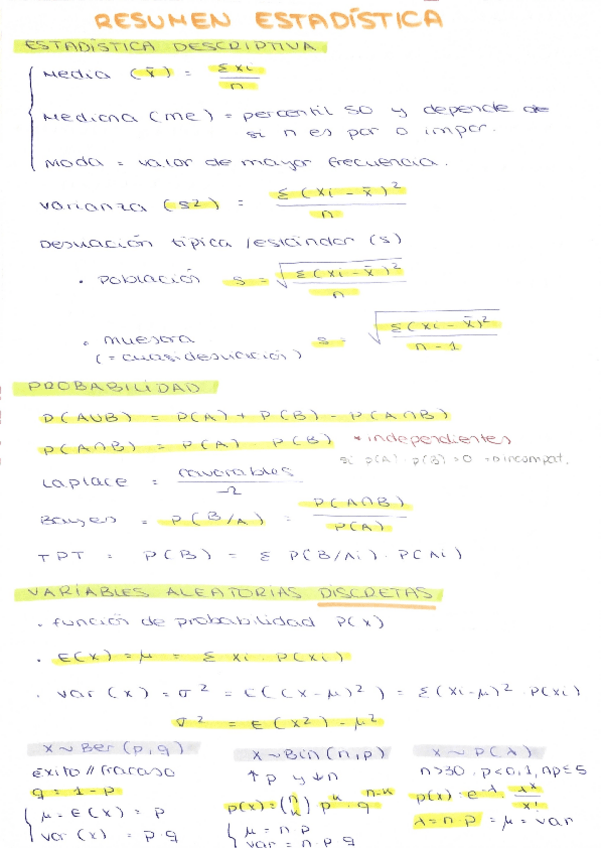 RESUMEN ESTADÍSTICA
ESTADÍSTICA DESCRIPTIVA
Media (x̄) = Σxi / n
Mediana (me) = percentil 50 y depende de
si n es par o impar.
Moda = valor de mayor frecuencia.
Varianza (s2) = Σ(xi - x̄)² / n
Desviación típica/estándar (s)
• Población s = √(Σ(xi - x̄)² / n)
• muestra s = √(Σ(xi - x̄)² / n - 1)
(= cuasidesviación)
PROBABILIDAD
P(A∪B) = P(A) + P(B) - P(A∩B)
P(A∩B) = P(A) · P(B) *independientes
si p(A)·p(B)=0 → incompat.
Laplace = favorables / Ω
Bayes = P(B/A) = P(A∩B) / P(A)
TPT = P(B) = Σ P(B/Ai) · P(Ai)
VARIABLES ALEATORIAS DISCRETAS
• función de probabilidad P(x)
• E(x) = μ = Σ xi · P(xi)
• var (x) = σ² = E((x-μ)²) = Σ(xi-μ)² · P(xi)
σ² = E(x²) - μ²
X ~ Ber (p, q)
éxito // fracaso
q = 1 - p
μ = E(x) = p
var (x) = p · q
X ~ Bin (n, p)
↑p y ↓n
p(x) = (n k) p^k · q^n-k
μ = n · p
var = n · p · q
X ~ P(λ)
n>30 · p<0,1, np≤5
p(x) = e^-λ · λ^x / x!
λ = n · p = μ = var